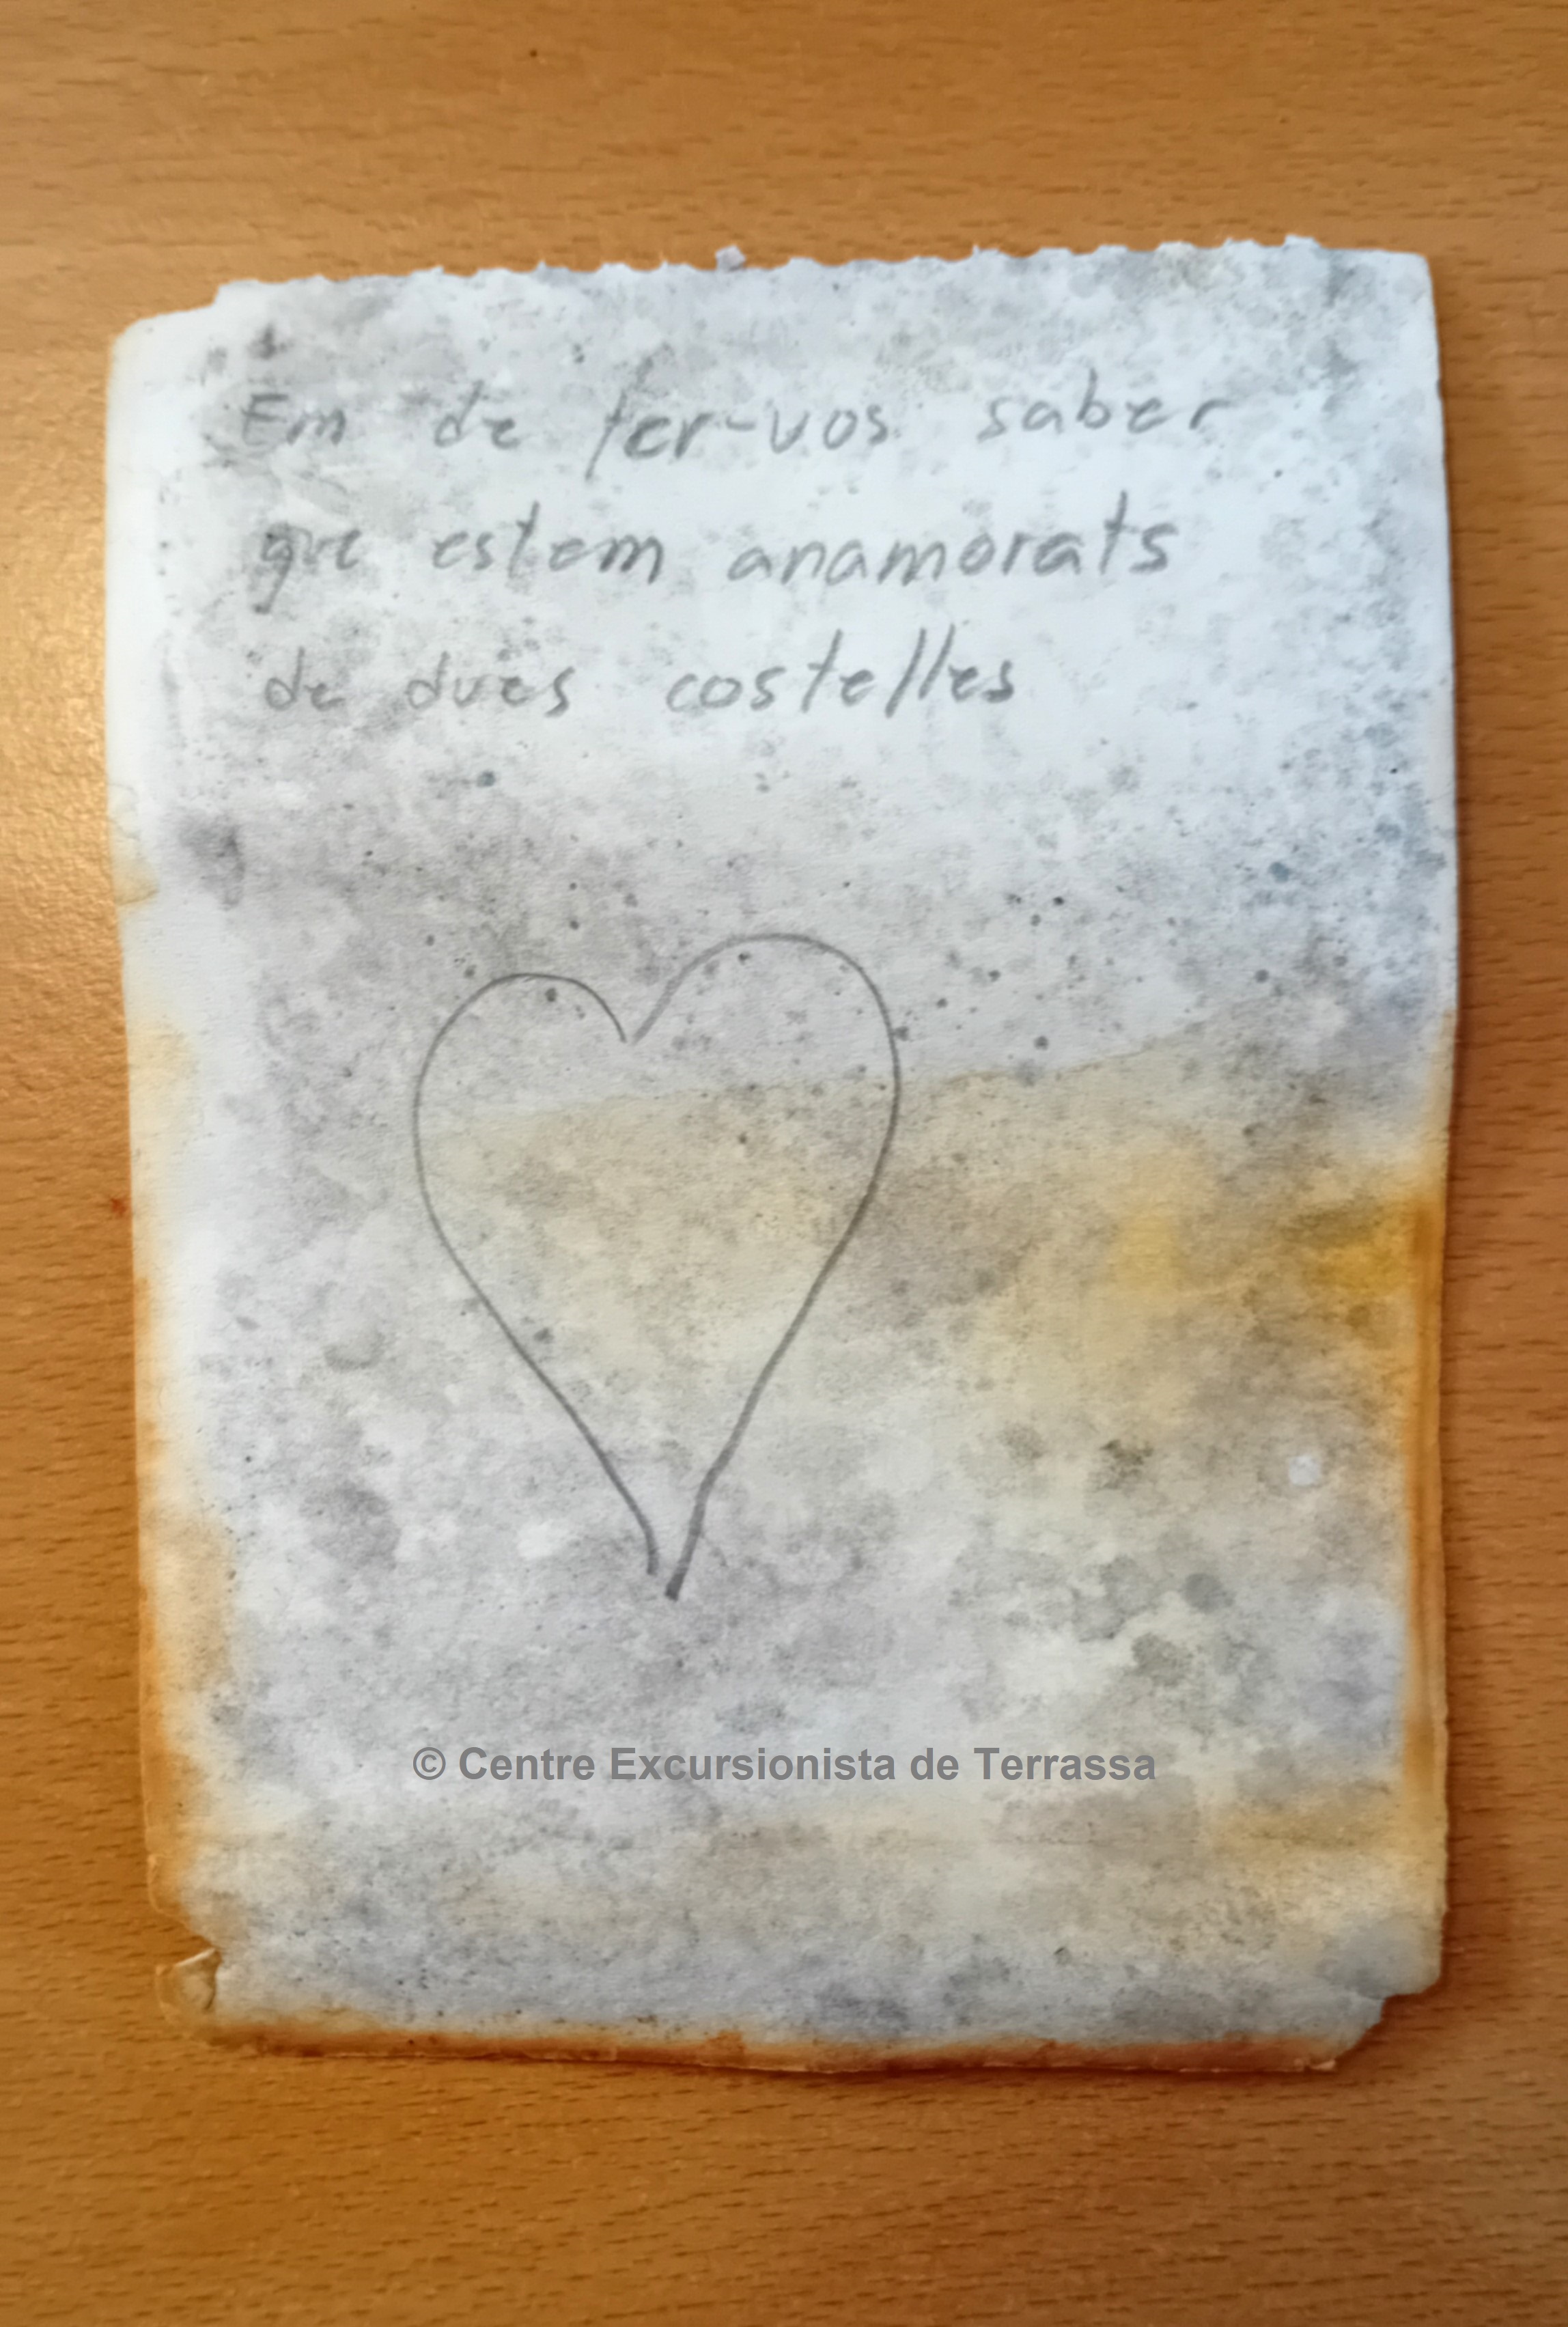 Em de fer-vos saber
que estem anamorats
de dues costelles
© Centre Excursionista de Terrassa